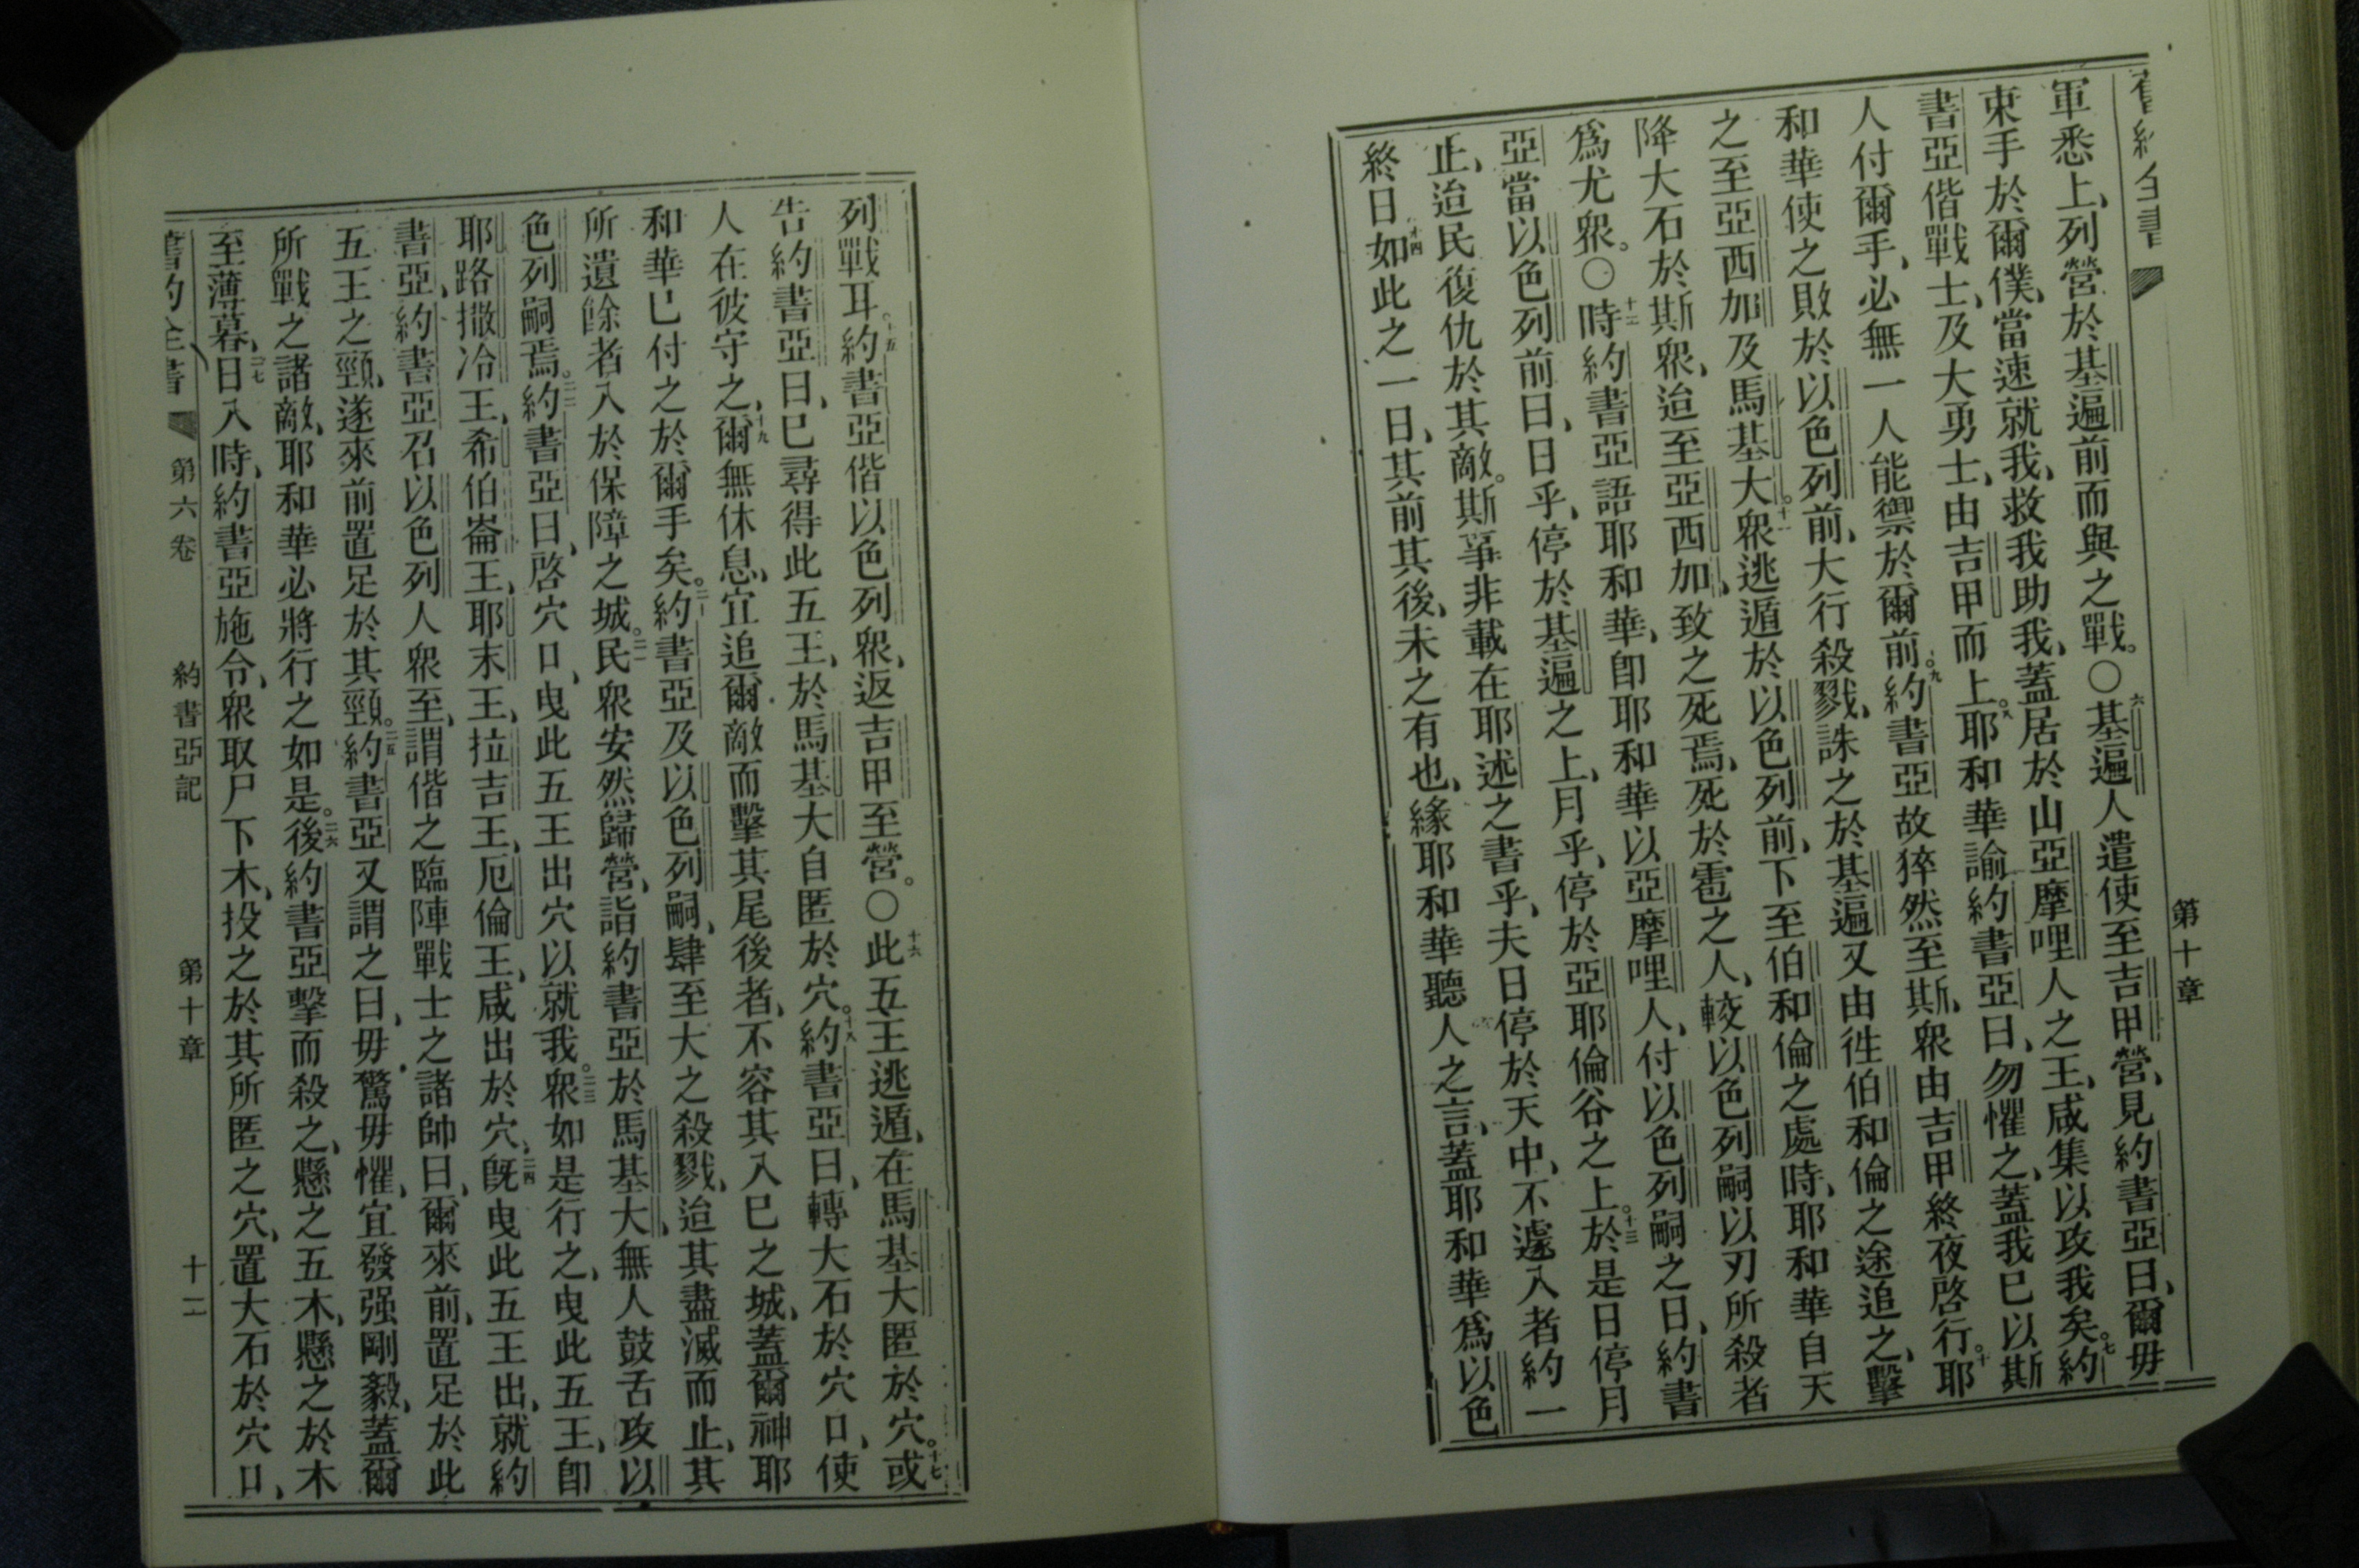 舊約全書 第十章
軍悉上、列營於基遍前而與之戰。〇六基遍人遣使至吉甲營、見約書亞曰、爾毋
束手於爾僕、當速就我、救我助我、蓋居於山亞摩哩人之王、咸集以攻我矣。七約
書亞偕戰士、及大勇士、由吉甲而上。八耶和華諭約書亞曰、勿懼之、蓋我已以斯
人付爾手、必無一人能禦於爾前。九約書亞故猝然至斯、衆由吉甲終夜啓行。十耶
和華使之敗於以色列前、大行殺戮、誅之於基遍又由徃伯和倫之途追之、擊
之至亞西加及馬基大。十一衆逃遁於以色列前、下至伯和倫之處時、耶和華自天
降大石於斯衆、迨至亞西加、致之死焉、死於雹之人、較以色列嗣以刃所殺者
爲尤衆。〇十二時約書亞語耶和華、卽耶和華以亞摩哩人、付以色列嗣之日、約書
亞當以色列前曰、日乎、停於基遍之上、月乎、停於亞耶倫谷之上。十三於是日停月
止、迨民復仇於其敵。斯事非載在耶述之書乎、夫日停於天中、不遽入者約一
終日、十四如此之一日、其前其後、未之有也、緣耶和華聽人之言、蓋耶和華爲以色
列戰耳。十五約書亞偕以色列衆、返吉甲至營。〇十六此五王逃遁、在馬基大匿於穴。十七或
告約書亞曰、已尋得此五王、於馬基大自匿於穴。十八約書亞曰、轉大石於穴口、使
人在彼守之、十九爾無休息、宜追爾敵而擊其尾後者、不容其入已之城、蓋爾神耶
和華已付之於爾手矣。二十約書亞及以色列嗣、肆至大之殺戮、迨其盡滅而止、其
所遺餘者入於保障之城。二一民衆安然歸營、詣約書亞於馬基大、無人鼓舌攻以
色列嗣焉。二二約書亞曰、啓穴口、曳此五王出穴以就我。二三衆如是行之、曳此五王、卽
耶路撒冷王、希伯崙王、耶末王、拉吉王、厄倫王、咸出於穴、二四旣曳此五王出、就約
書亞、約書亞召以色列人衆至、謂偕之臨陣戰士之諸帥曰、爾來前、置足於此
五王之頸、遂來前置足於其頸。二五約書亞又謂之曰、毋驚毋懼、宜發强剛毅、蓋爾
所戰之諸敵、耶和華必將行之如是。二六後約書亞擊而殺之、懸之五木、懸之於木
至薄暮、二七日入時、約書亞施令、衆取尸下木、投之於其所匿之穴、置大石於穴口、
舊約全書 第六卷 約書亞記 第十章 十一